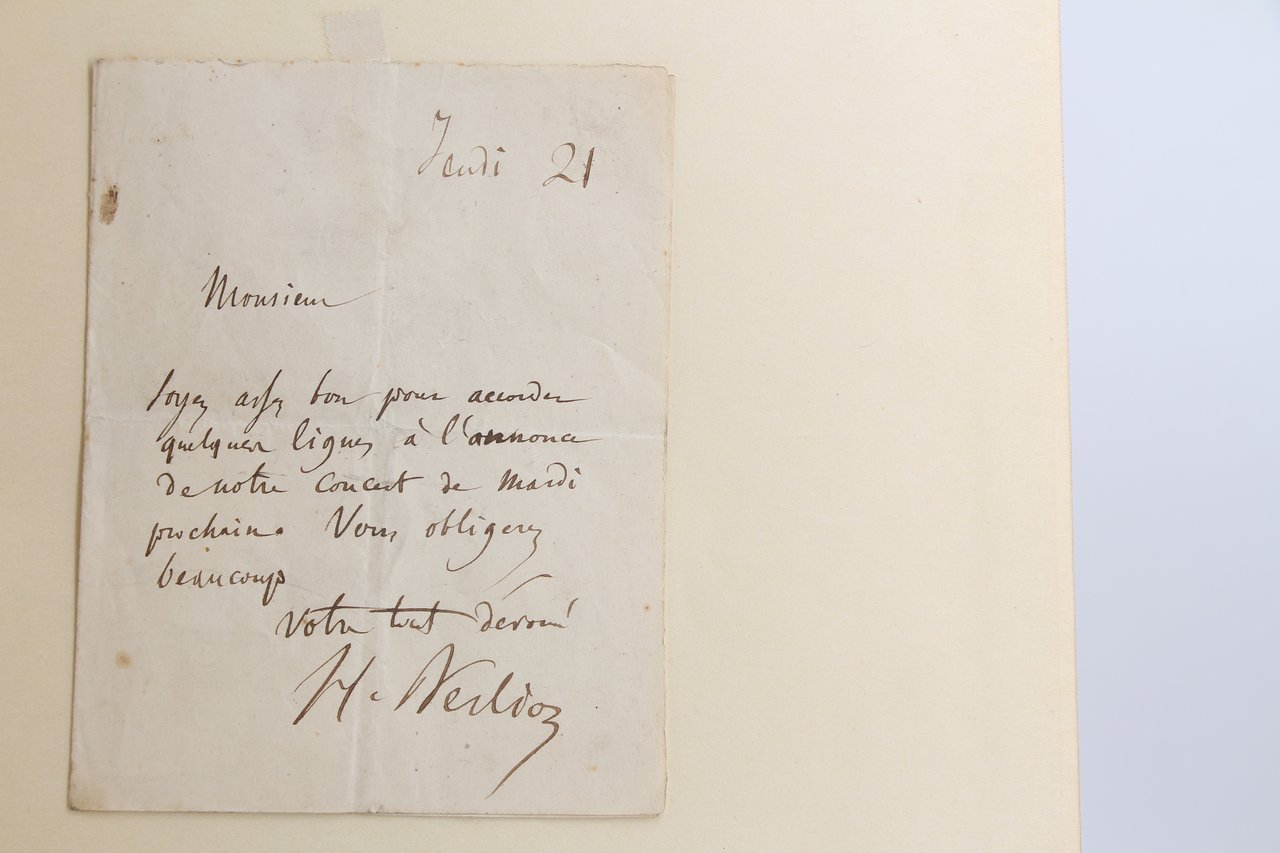 Jeudi 21
Monsieur
Soyez assez bon pour accorder
quelques lignes à l'annonce
de notre concert de mardi
prochain. Vous obligerez
beaucoup
votre tout dévoué
H. Berlioz